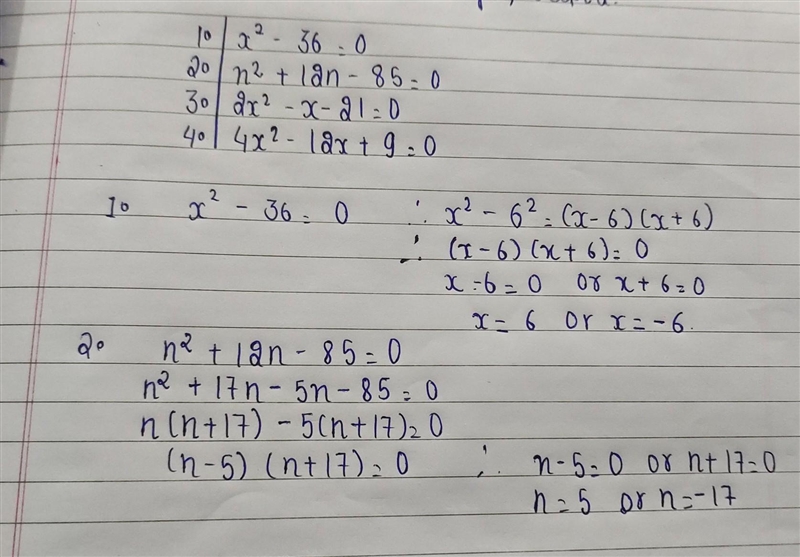 1. x² - 36 = 0
2. n² + 12n - 85 = 0
3. 2x² - x - 21 = 0
4. 4x² - 12x + 9 = 0
1. x² - 36 = 0 ∴ x² - 6² = (x-6)(x+6)
∴ (x-6)(x+6) = 0
x-6=0 or x+6=0
x = 6 or x = -6.
2. n² + 12n - 85 = 0
n² + 17n - 5n - 85 = 0
n(n+17) - 5(n+17) = 0
(n-5)(n+17) = 0 ∴ n-5=0 or n+17=0
n=5 or n=-17